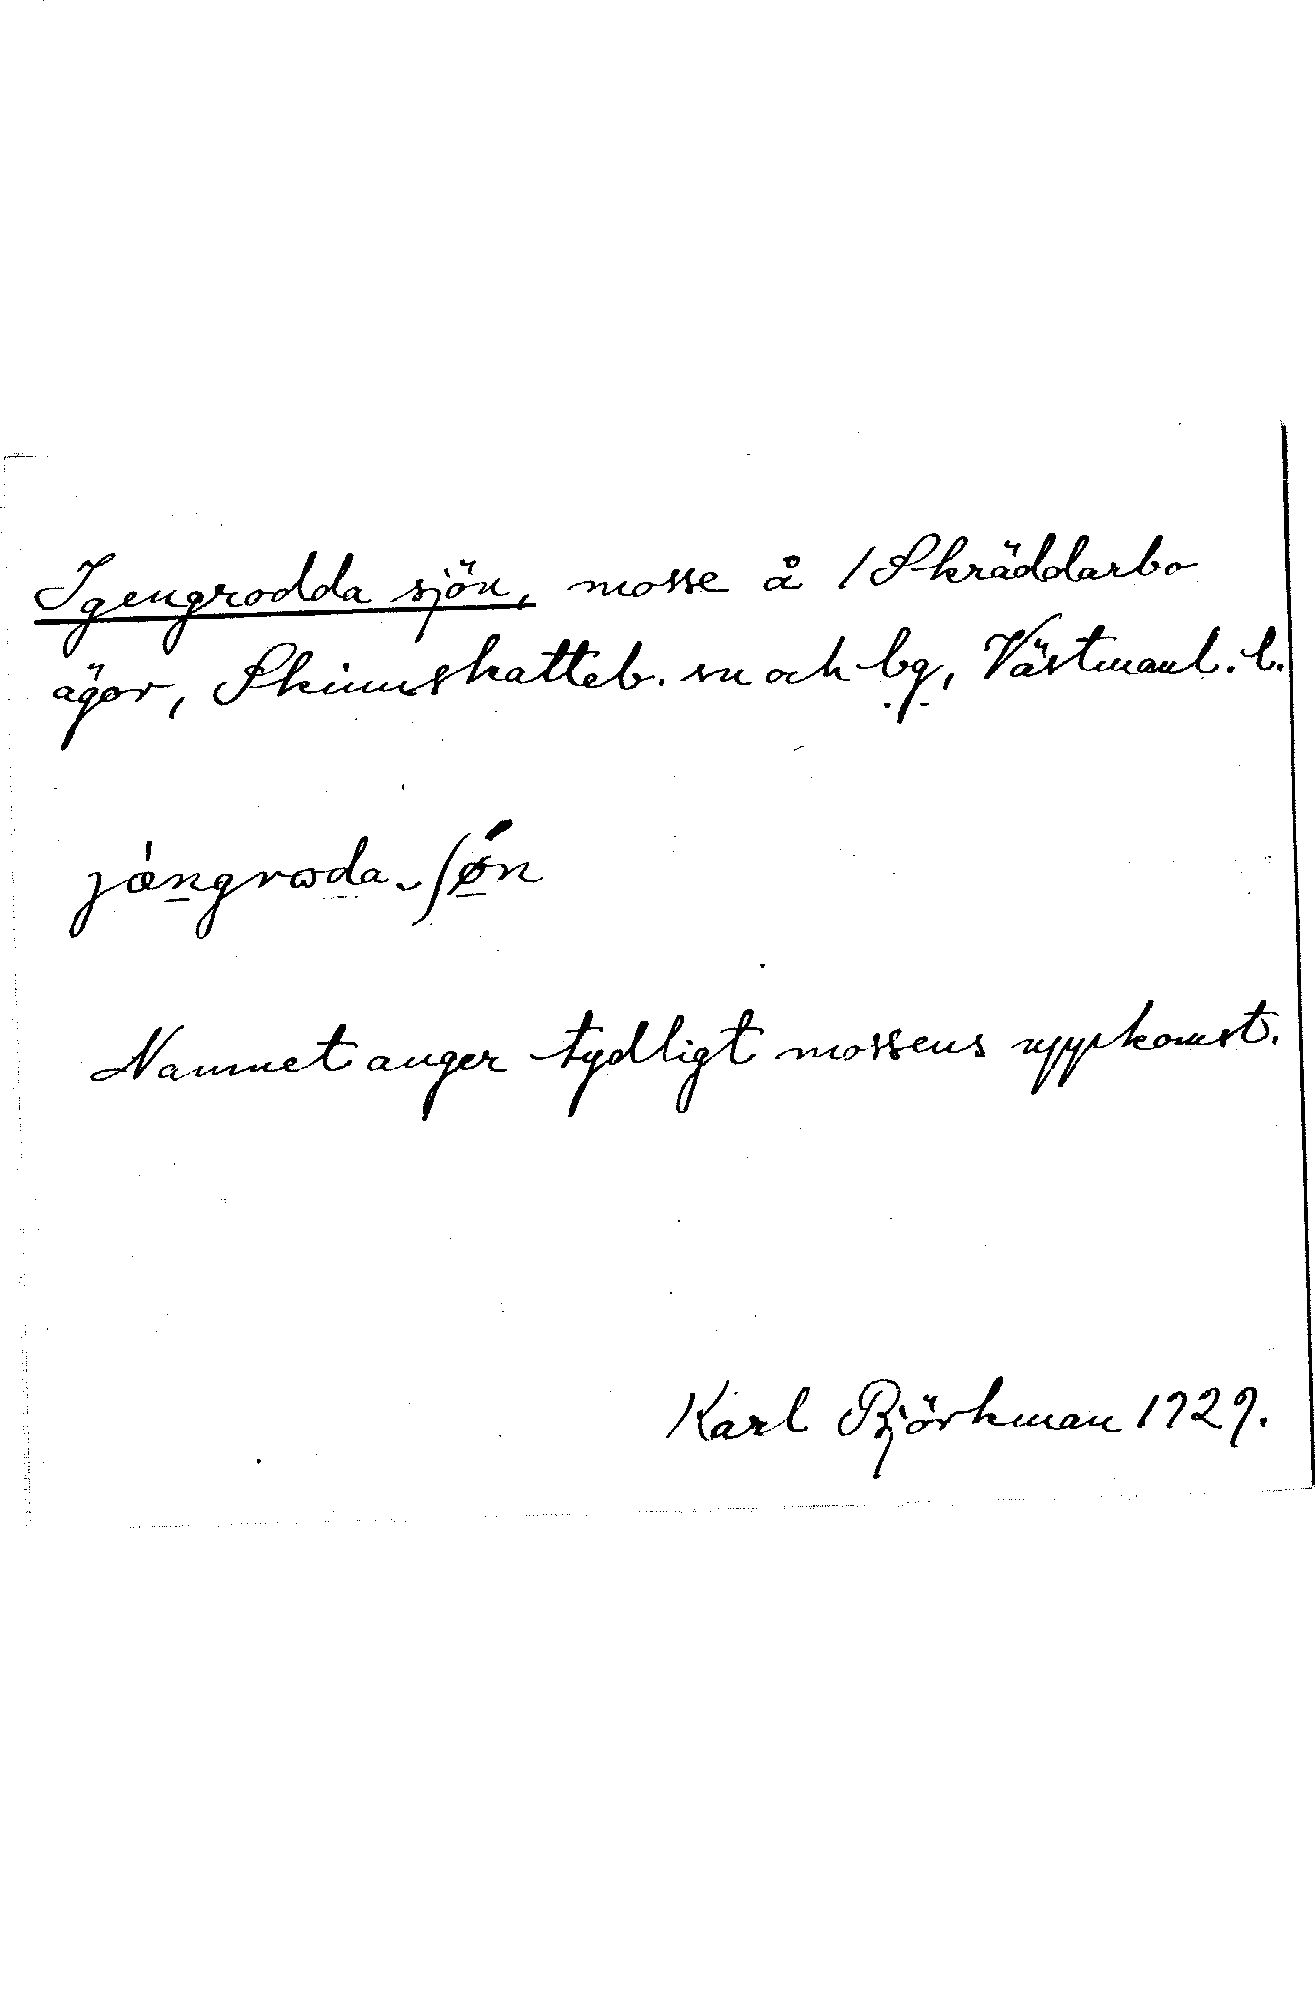 Igengrodda sjön, mosse å /Skräddarbo
ägor, Skinnskatteb. sn och bg, Västmanl. l.
jǽngroda ʃøn
Namnet anger tydligt mossens uppkomst.
Karl Björkman 1929.